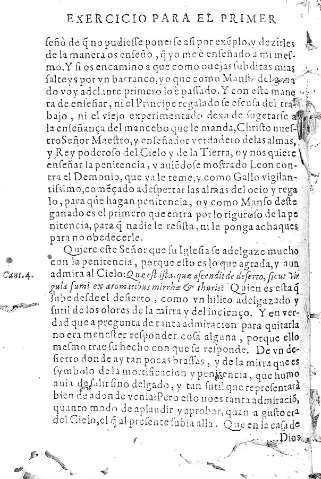 EXERCICIO PARA EL PRIMER
señó de q̃ no pudiesse ponerse asi por exẽplo, y de zirles
de la manera os enseño, q̃ yo me è enseñado a mi mes-
mo. Y si os encamino a que como ouejas subditas mias
salteys por vn barranco, yo que como Manso del gana
do voy adelante primero lo è passado. Y con esta mane
ra de enseñar, ni el Principe regalado se escusa del tra
bajo, ni el viejo experimentado dexa de sugetarse a
la enseñança del mancebo que le manda, Christo nues-
tro Señor Maestro, y enseñador verdadero de las almas,
y Rey poderoso del Cielo y de la Tierra, oy nos quiere
enseñar la penitencia, y auiẽdose mostrado Leon con-
tra el Demonio, que ya le teme, y como Gallo vigilan-
tissimo, comẽçado a despertar las almas del ocio y rega
lo, para que hagan penitencia, oy como Manso deste
ganado es el primero que entra por lo riguroso de la pe
nitencia, para q̃ nadie le resista, ni le ponga achaques
para no obedecerle.
Quiere este Señor que su Iglesia se adelgaze mucho
con la penitencia, porque esto es lo que agrada, y aun
Cant.4.
admira al Cielo: Quæ est ista, quæ ascendit de deserto, sicut Vir
gula fumi ex aromatibus mirrhæ & thuris? Quien es esta q̃
sube desde el desierto, como vn hilito adelgazado y
sutil de los olores de la mirra y del incienço. Y en ver-
dad que a pregunta de tanta admiracion para quitarla
no era menester responder cosa alguna, porque ello
mesmo trae su hecho con que se responde. De vn de-
sierto donde ay tan pocas brassas, y de la mirra que es
symbolo de la mortificacion y penitencia, que humo
auia de salir sino delgado, y tan sutil que representarà
bien de adonde venia? Pero esto no es tanta admiraciõ,
quanto modo de aplaudir y aprobar, quan a gusto era
del Cielo, el q̃ al presente subia alla. Que en la casa de
Dios